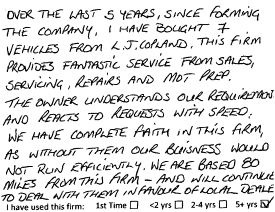 OVER THE LAST 5 YEARS, SINCE FORMING
THE COMPANY, I HAVE BOUGHT 7
VEHICLES FROM L.J.COPLAND. THIS FIRM
PROVIDES FANTASTIC SERVICE FROM SALES,
SERVICING, REPAIRS AND MOT PREP.
THE OWNER UNDERSTANDS OUR REQUIREMEN
AND REACTS TO REQUESTS WITH SPEED.
WE HAVE COMPLETE FAITH IN THIS FIRM,
AS WITHOUT THEM OUR BUISNESS WOULD
NOT RUN EFFICIENTLY. WE ARE BASED 80
MILES FROM THIS FIRM - AND WILL CONTINUE
TO DEAL WITH THEM IN FAVOUR OF LOCAL DEALE
I have used this firm: 1st Time ☐ <2 yrs ☐ 2-4 yrs ☐ 5+ yrs ☑